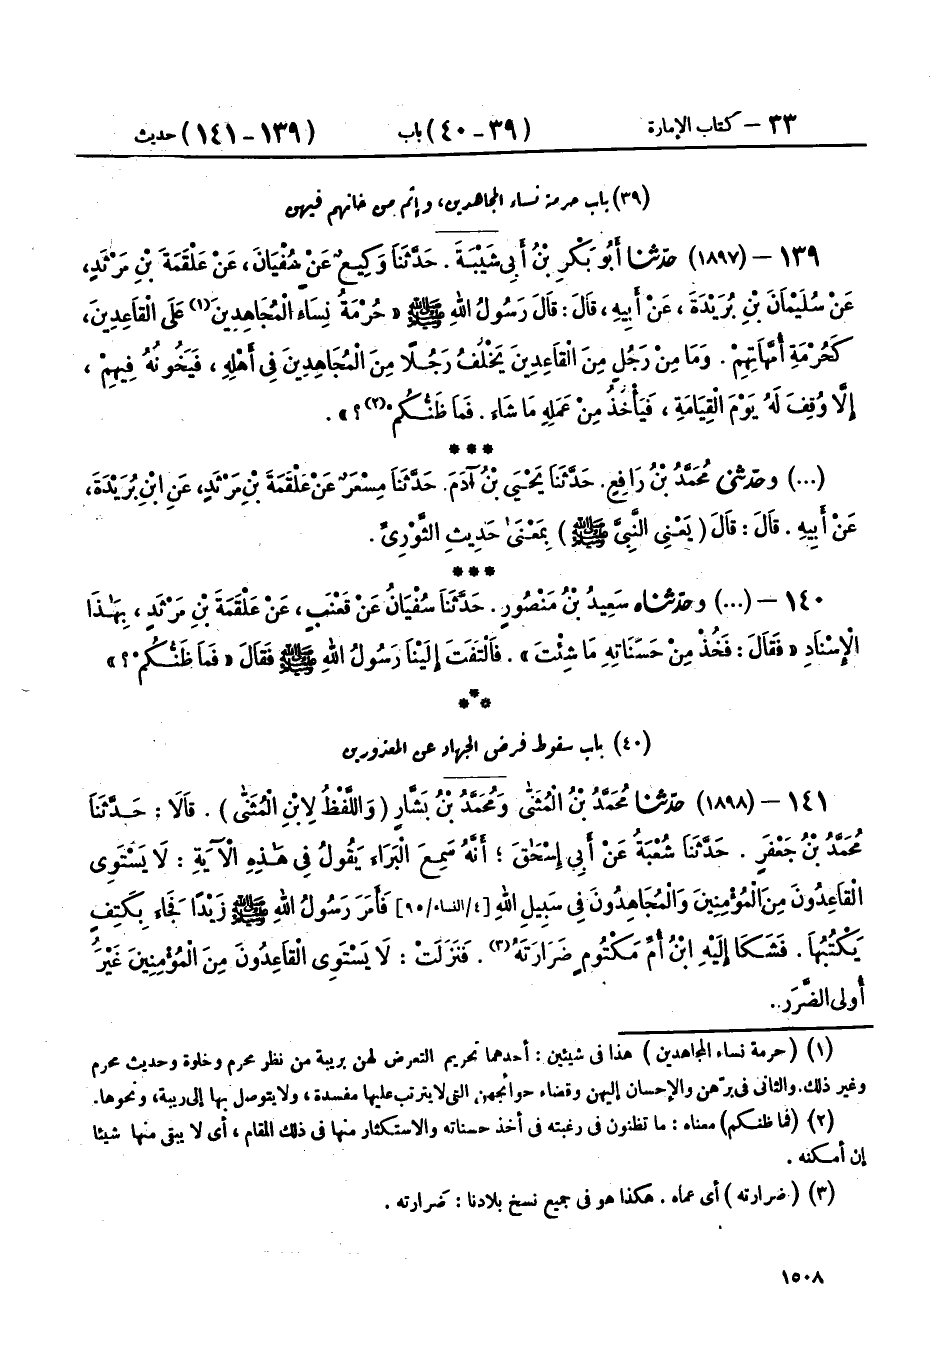 ٣٣ – كتاب الإمارة (٣٩ – ٤٠) باب (١٣٩ – ١٤١) حديث
(٣٩) باب حرمة نساء المجاهدين، وإثم من خانهم فيهن
١٣٩ – (١٨٩٧) حدثنا أَبُو بَكْرِ بْنُ أَبِي شَيْبَةَ . حَدَّثَنَا وَكِيعٌ عَنْ سُفْيَانَ، عَنْ عَلْقَمَةَ بْنِ مَرْثَدٍ،
عَنْ سُلَيْمَانَ بْنِ بُرَيْدَةَ ، عَنْ أَبِيهِ ، قَالَ : قَالَ رَسُولُ اللهِ ﷺ « حُرْمَةُ نِسَاءِ الْمُجَاهِدِينَ(١) عَلَى الْقَاعِدِينَ،
كَحُرْمَةِ أُمَّهَاتِهِمْ . وَمَا مِنْ رَجُلٍ مِنَ الْقَاعِدِينَ يَخْلُفُ رَجُلًا مِنَ الْمُجَاهِدِينَ فِي أَهْلِهِ ، فَيَخُونُهُ فِيهِمْ ،
إِلَّا وُقِفَ لَهُ يَوْمَ الْقِيَامَةِ ، فَيَأْخُذُ مِنْ عَمَلِهِ مَا شَاءَ . فَمَا ظَنُّكُمْ(٢) ؟ » .
***
(...) وحدثنى مُحَمَّدُ بْنُ رَافِعٍ. حَدَّثَنَا يَحْيَى بْنُ آدَمَ. حَدَّثَنَا مِسْعَرٌ عَنْ عَلْقَمَةَ بْنِ مَرْثَدٍ، عَنِ ابْنِ بُرَيْدَةَ،
عَنْ أَبِيهِ . قَالَ : قَالَ ( يَعْنِي النَّبِيَّ ﷺ ) بِمَعْنَى حَدِيثِ الثَّوْرِيِّ .
***
١٤٠ – (...) وحدثناه سَعِيدُ بْنُ مَنْصُورٍ . حَدَّثَنَا سُفْيَانُ عَنْ قَعْنَبٍ، عَنْ عَلْقَمَةَ بْنِ مَرْثَدٍ ، بِهَذَا
الْإِسْنَادِ « فَقَالَ : فَخُذْ مِنْ حَسَنَاتِهِ مَا شِئْتَ » . فَالْتَفَتَ إِلَيْنَا رَسُولُ اللهِ ﷺ فَقَالَ « فَمَا ظَنُّكُمْ ؟ »
***
(٤٠) باب سقوط فرض الجهاد عن المعذورين
١٤١ – (١٨٩٨) حدثنا مُحَمَّدُ بْنُ الْمُثَنَّى وَمُحَمَّدُ بْنُ بَشَّارٍ ( وَاللَّفْظُ لِابْنِ الْمُثَنَّى ) . قَالَا : حَدَّثَنَا
مُحَمَّدُ بْنُ جَعْفَرٍ . حَدَّثَنَا شُعْبَةُ عَنْ أَبِي إِسْحَقَ ؛ أَنَّهُ سَمِعَ الْبَرَاءَ يَقُولُ فِي هَذِهِ الْآيَةِ : لَا يَسْتَوِى
الْقَاعِدُونَ مِنَ الْمُؤْمِنِينَ وَالْمُجَاهِدُونَ فِي سَبِيلِ اللهِ [٤/النساء/٩٥] فَأَمَرَ رَسُولُ اللهِ ﷺ زَيْدًا فَجَاءَ بِكَتِفٍ
يَكْتُبُهَا . فَشَكَا إِلَيْهِ ابْنُ أُمِّ مَكْتُومٍ ضَرَارَتَهُ(٣) . فَنَزَلَتْ : لَا يَسْتَوِى الْقَاعِدُونَ مِنَ الْمُؤْمِنِينَ غَيْرُ
أُولِى الضَّرَرِ..
(١) (حرمة نساء المجاهدين) هذا فى شيئين : أحدهما تحريم التعرض لهن بريبة من نظر محرم وخلوة وحديث محرم
وغير ذلك. والثانى فى برّهن والإحسان إليهن وقضاء حوائجهن التى لا يترتب عليها مفسدة ، ولا يتوصل بها إلى ريبة، ونحوها.
(٢) (فما ظنكم) معناه : ما تظنون فى رغبته فى أخذ حسناته والاستكثار منها فى ذلك المقام ، أى لا يبقى منها شيئا
إن أمكنه .
(٣) (ضرارته) أى عماه . هكذا هو فى جميع نسخ بلادنا : ضرارته .
١٥٠٨